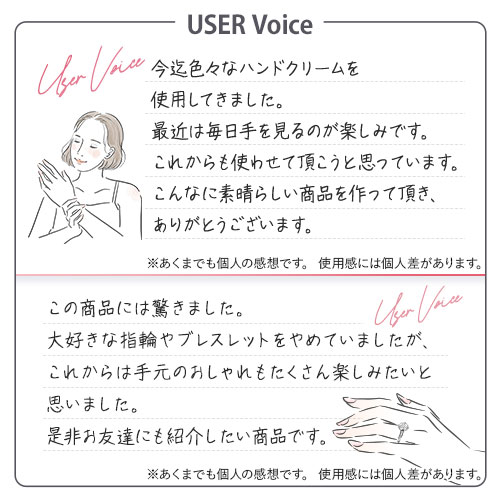 USER Voice
User Voice
今迄色々なハンドクリームを
使用してきました。
最近は毎日手を見るのが楽しみです。
これからも使わせて頂こうと思っています。
こんなに素晴らしい商品を作って頂き、
ありがとうございます。
※あくまでも個人の感想です。 使用感には個人差があります。
User Voice
この商品には驚きました。
大好きな指輪やブレスレットをやめていましたが、
これからは手元のおしゃれもたくさん楽しみたいと
思いました。
是非お友達にも紹介したい商品です。
※あくまでも個人の感想です。 使用感には個人差があります。